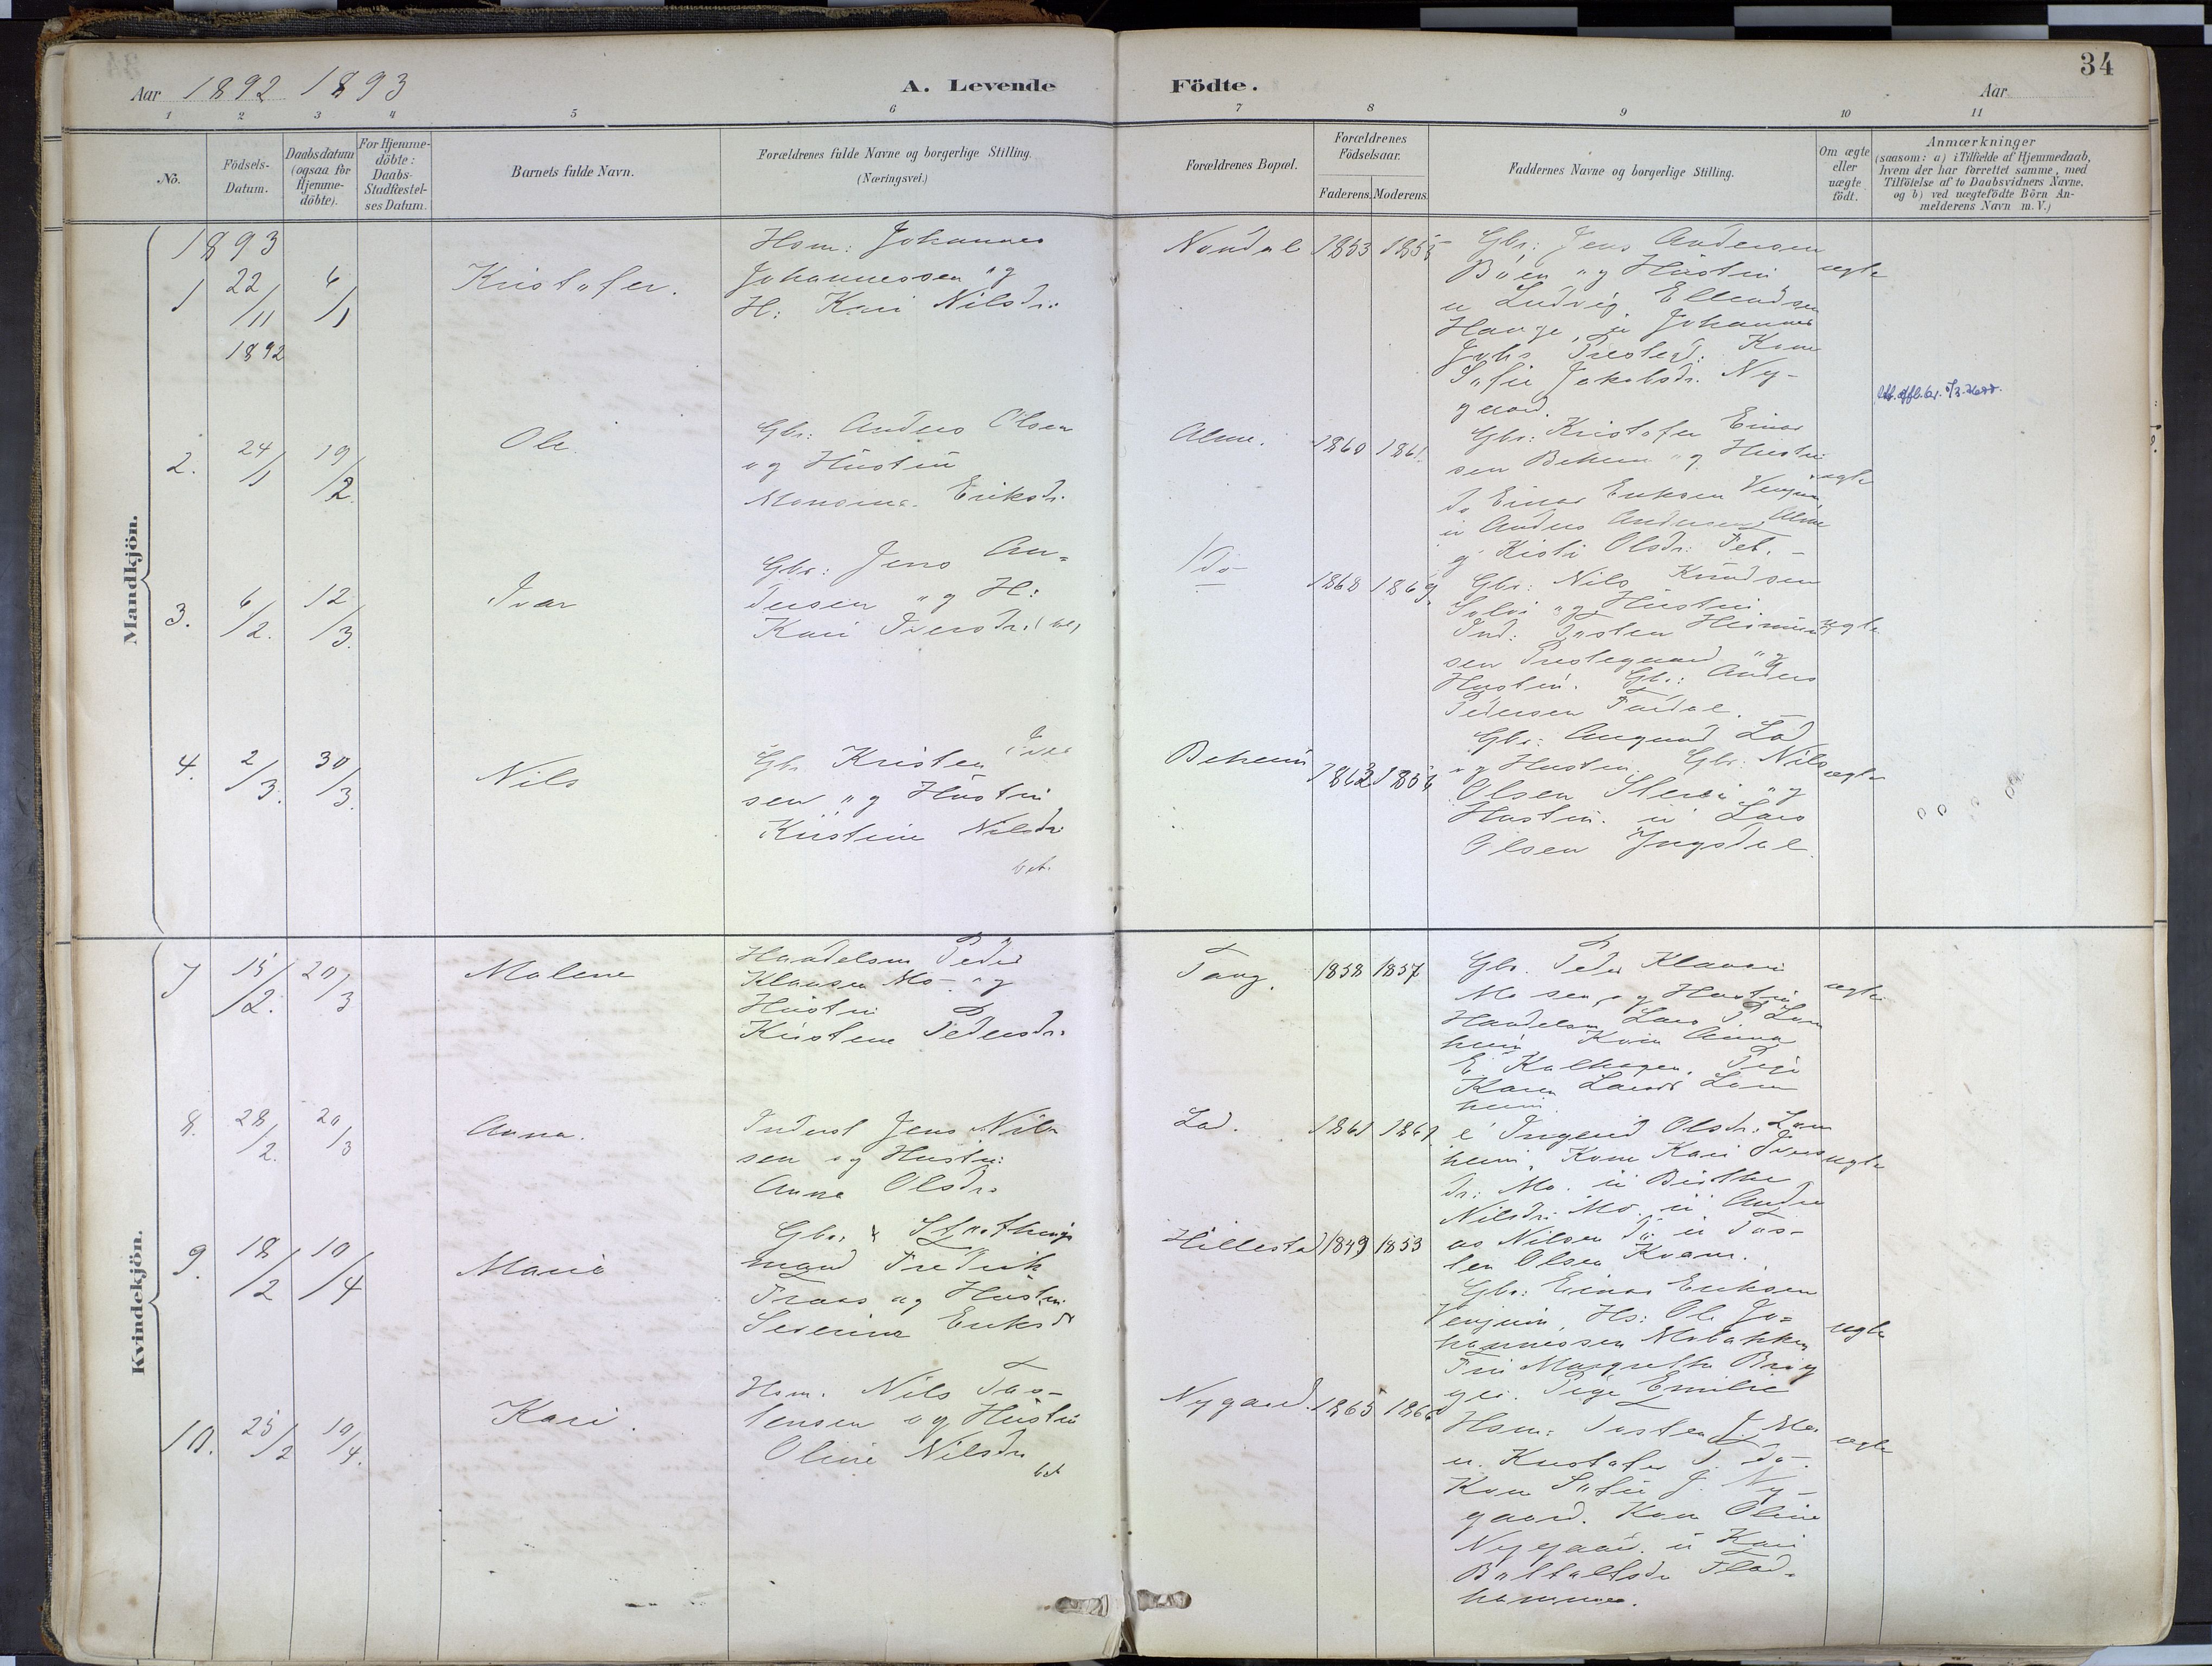 34
Aar 1892 1893
A. Levende Födte.
Aar
1 2 3 4 5 6 7 8 9 10 11
No.
Födsels-Datum.
Daabsdatum (ogsaa for Hjemme-döbte).
For Hjemme-döbte: Daabs-Stadfæstel-ses Datum.
Barnets fulde Navn.
Forældrenes fulde Navne og borgerlige Stilling.
(Næringsvei.)
Forældrenes Bopæl.
Forældrenes Födselsaar.
Faderens. Moderens.
Faddernes Navne og borgerlige Stilling.
Om ægte eller uægte födt.
Anmærkninger
(saasom: a) i Tilfælde af Hjemmedaab,
hvem der har forrettet samme, med
Tilföielse af to Daabsvidners Navne,
og b) ved uægtefödte Börn An-
melderens Navn m. V.)
Mandkjön.
1893
1 22/11 1892 6/1
Kristofer.
Hsm: Johannes
Johannessen og
H: Kari Nilsdr:
Nondal 1853 1855
Gbr: Jens Andersen
Böen og Hustru
u Ludvig Ellendsen
Hauge, u Johannes
Johs Prestegd: Kone
Sofie Jakobsdr. Ny-
gaard.
ægte
2. 24/1 19/2.
Ole
Gbr: Anders Olsen
og Hustru
Eriksdr.
Alme. 1860 1861.
Gbr: Kristofer Einar
sen Beheim og Hustru
do Einar Eriksen Venjum
u Anders Andersen Alme
g Kisti Olsdr: Fet. -
ægte
3. 6/2. 12/3.
Ivar
Gbr: Jens An=
dersen og H:
Kari Iversdr:
do 1868 1869
Gbr: Nils Knudsen
Solvi og Hustru.
Ind: Tosten
sen Prestegaard og
Hustru. Gbr: Anders
Pedersen Tandal.
ægte
4. 2/3. 30/3.
Nils
Gbr Kristen Iver
sen og Hustru
Kristine Nilsdr
Beheim 1862 1856
Gbr: Lad
og Hustru Gbr: Nils
Olsen og
Hustru. u Lars
Olsen Yngsdal.
ægte
Kvindekjön.
7 15/2. 20/3
Malene
Handelsm Peder
Klausen Mo- og
Hustru
Kristine Pedersdr.
Tang. 1858 1857
Gbr. Peder Klausen
Mo sen. og Hustru
Handelsm Lars P. Lom
heim Kone Anna
E Kalhagen. Pige
Karen Larsdr Lom
heim.
ægte
8. 28/2. 20/3
Anna.
Inderst Jens Nil
sen og Hustru:
Anna Olsdr.
Lad. 1861 1861
e Ingerid Olsdr: Lom
heim, Kone Kari Ivers
dr: Mo. u Birthe
Nilsdr. Mo. u Andre
as Nilsen do u Tos-
ten Olsen Kvam.
ægte
9. 18/2 10/4
Maria
Gbr. &
mand Fredrik
Fraas og Hustru
Severine Eriksdr
Hillestad 1849 1853
Gbr: Einar Eriksen
Venjum, Hs: Ole Jo=
hannessen Mobakken
Fru Margrethe Brig
ger. Pige Emilie
ægte
10. 25/2 10/4.
Kari.
Hsm. Nils Tos-
tensen og Hustru
Oline Nilsdr
Nygaard. 1865 1866
Hsm: Tosten J. Mo
u. Kristofer J. do.
Kone Sofie J. Ny-
gaard. Kone Oline
Nygaard. u Kari
Botolfsdr Flad-
hammer.
ægte